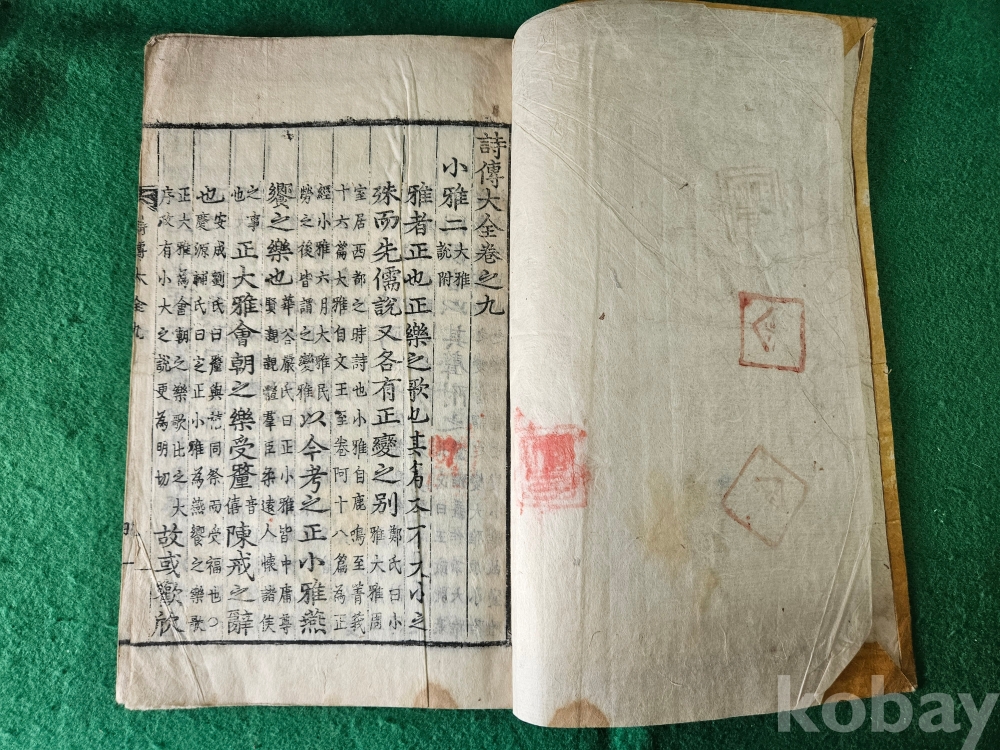 詩傳大全卷之九
小雅二大雅說附
雅者正也正樂之歌也其篇大小之
殊而先儒說又各有正變之別鄭氏曰小雅大雅周
室居西都之時詩也小雅自鹿鳴至菁莪
十六篇大雅自文王至卷阿十八篇為正
經小雅六月大雅民勞之後皆謂之變雅以今考之正小雅燕
饗之樂也華谷嚴氏曰正小雅皆中庸尊賢親親體羣臣柔遠人懷諸侯
之事也正大雅會朝之樂受釐音僖陳戒之辭
也安成劉氏曰釐與禧同祭而受福也○慶源輔氏曰定正小雅為燕饗之樂歌
正大雅為會朝之樂歌比之大序政有小大之說更為明切故或歡欣
詩傳大全九
一
kobay